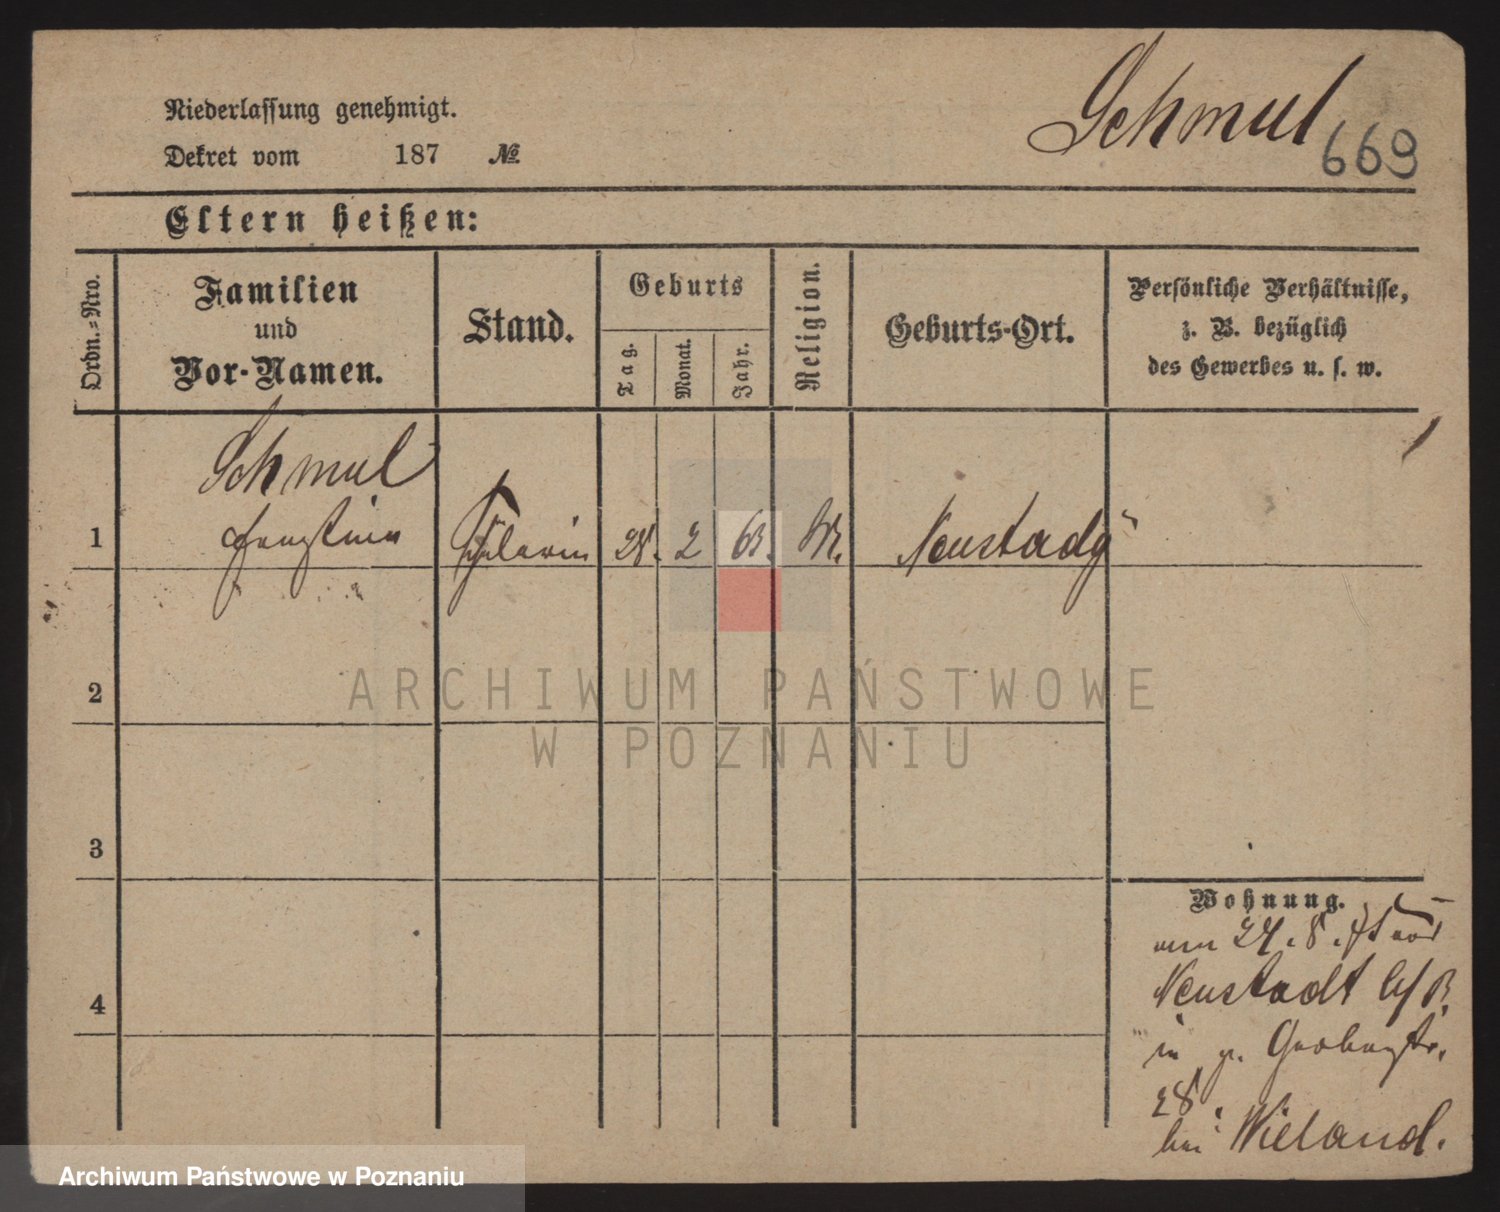 Niederlassung genehmigt.
Schmul
669
Dekret vom 187 №
Eltern heißen:
Ordn.-Nro.
Familien
und
Vor-Namen.
Stand.
Geburts
Tag.
Monat.
Jahr.
Religion.
Geburts-Ort.
Persönliche Verhältnisse,
z. B. bezüglich
des Gewerbes u. s. w.
Schmul
1 Schülerin 28. 2 63. Neustadt
2
3
4
Wohnung.
24. 8.
Neustadt b/P.
in
28
bei Wieland.
ARCHIWUM PAŃSTWOWE
W POZNANIU
Archiwum Państwowe w Poznaniu